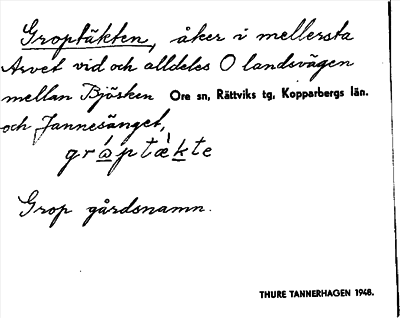 Groptäkten, åker i mellersta
Arvet vid och alldeles O landsvägen
mellan Björken Ore sn, Rättviks tg, Kopparbergs län.
och Jannesänget,
grὰ̣ptæ̀kte
Grop gårdsnamn.
THURE TANNERHAGEN 1948.